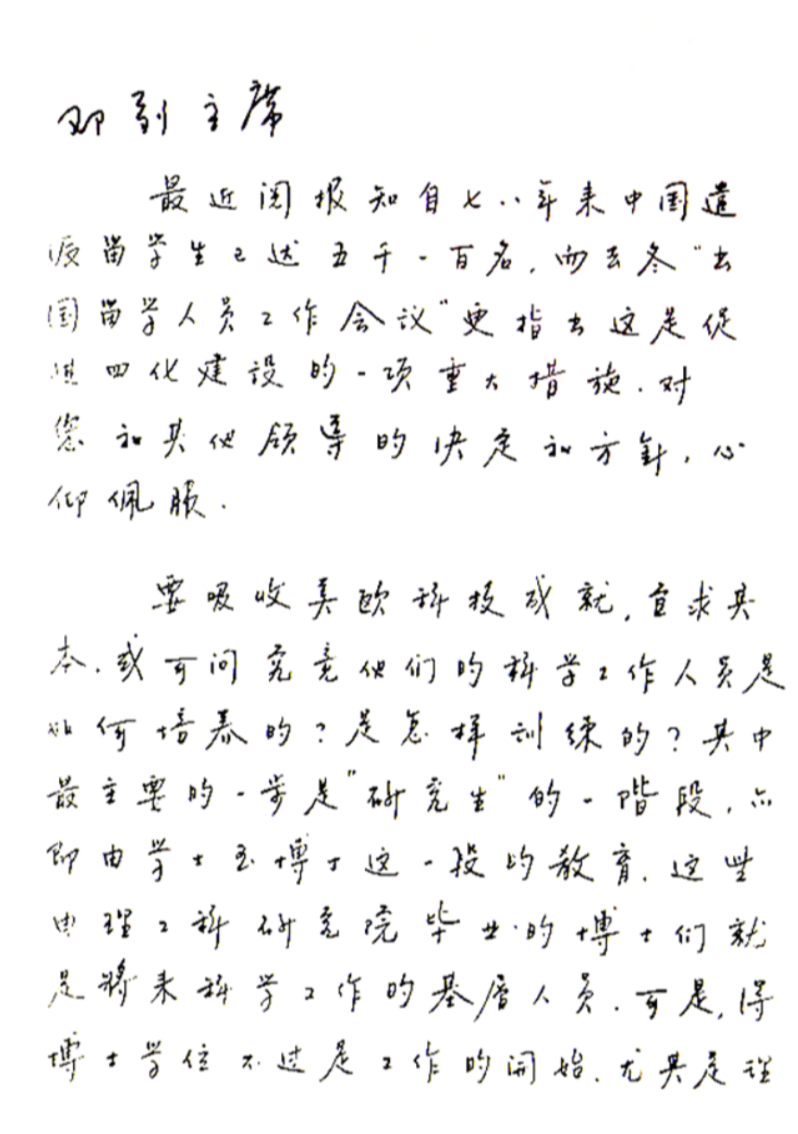 邓副主席
最近阅报知自七八年来中国遣
派留学生已达五千一百名，而去冬“出
国留学人员工作会议”更指出这是促
进四化建设的一项重大措施．对
您和其他领导的决定和方针，心
仰佩服．
要吸收美欧科技成就，宜求其
本．或可问究竟他们的科学工作人员是
如何培养的？是怎样训练的？其中
最主要的一步是“研究生”的一阶段，亦
即由学士至博士这一段的教育．这些
由理工科研究院毕业的博士们就
是将来科学工作的基层人员．可是，得
博士学位不过是工作的開始．尤其是理